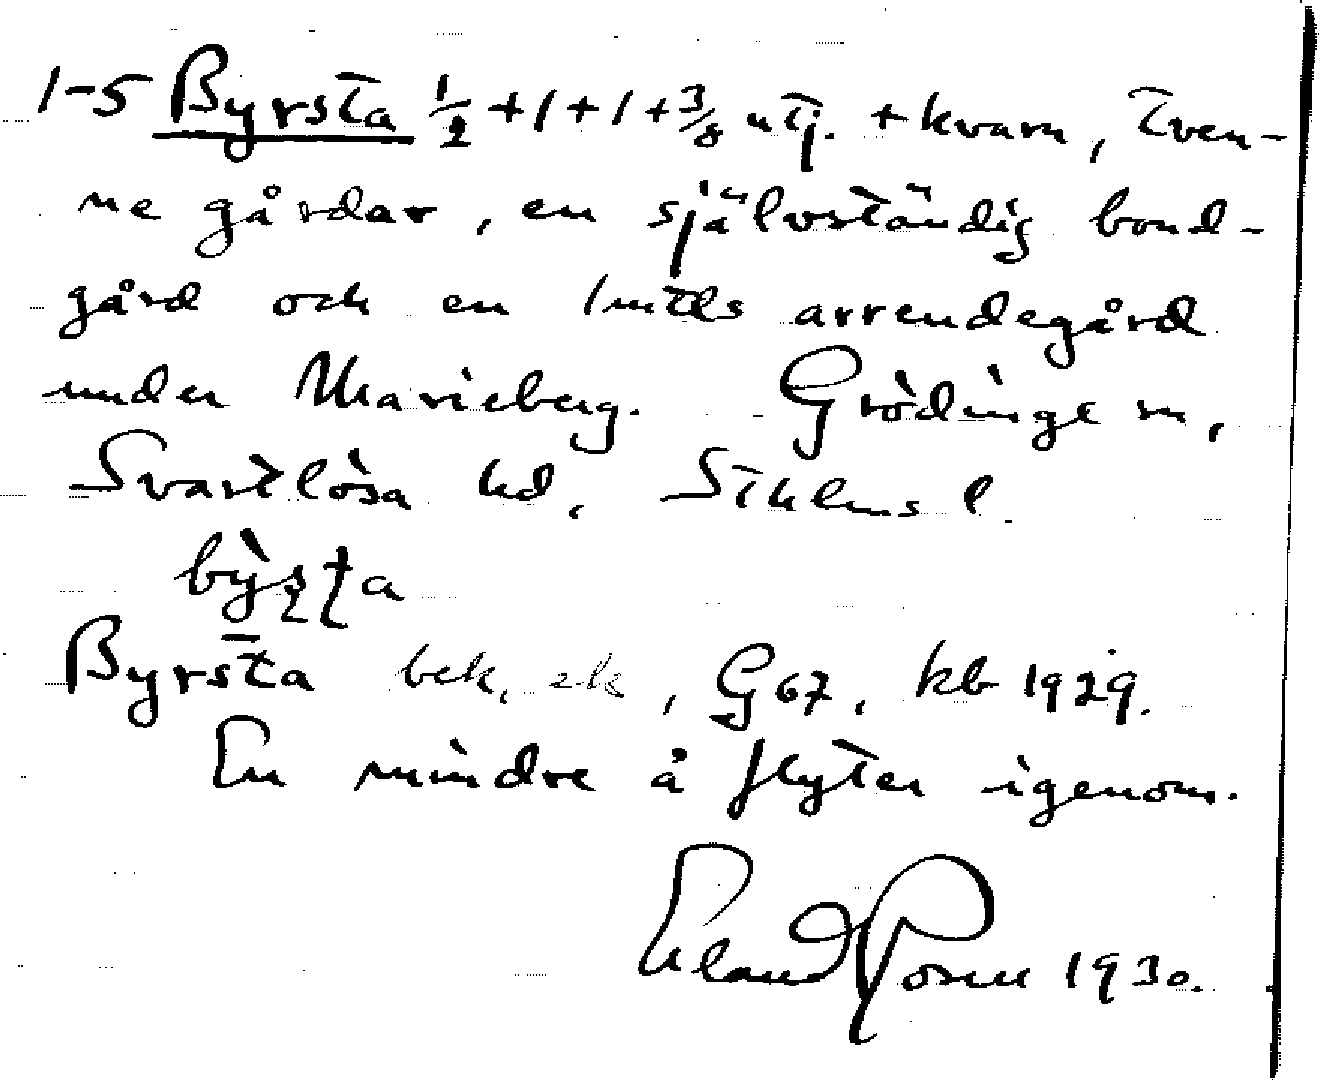 1-5 Byrsta ½ + 1 + 1 + ⅜ utj. + kvarn, Tven-
ne gårdar, en självständig bond-
gård och en 1 mtls arrendegård
under Marieberg. Grödinge sn,
Svartlösa hd, Sthlms l.
bỳʂʈa
Byrsta bek. ek, G 67, kb 1929.
En mindre å flyter igenom.
Erland Rosell 1930.